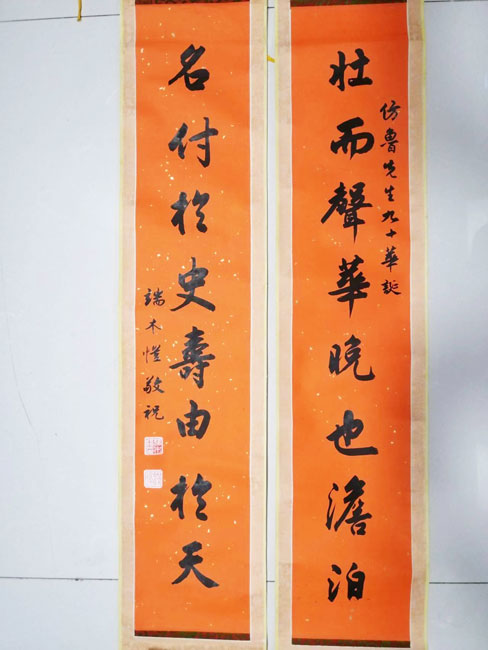 仿魯先生九十華誕
壯而聲華晚也澹泊
名付於史壽由於天
端木愷敬祝